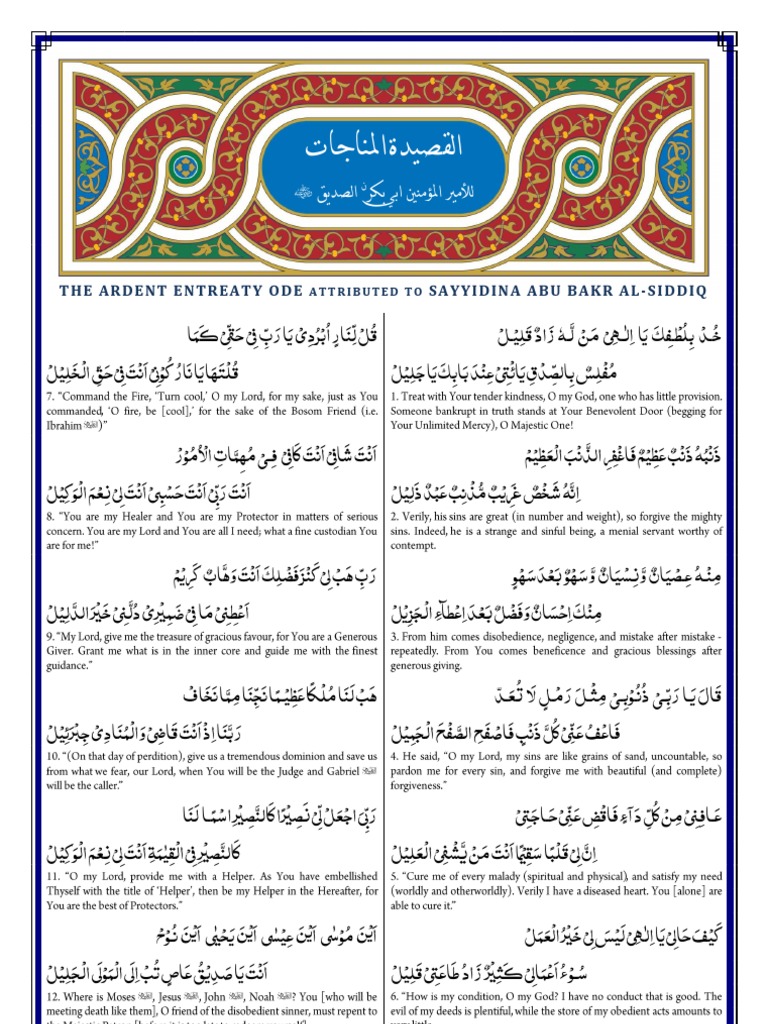 القصيدة المناجات
للأمير المؤمنين ابي بكرن الصديق ﷺ
THE ARDENT ENTREATY ODE ATTRIBUTED TO SAYYIDINA ABU BAKR AL-SIDDIQ
خُذْ بِلُطْفِكَ يَا اِلٰهِيْ مَنْ لَّهٗ زَادٌ قَلِيْلْ
مُفْلِسٌ بِالصِّدْقِ يَاْتِيْ عِنْدَ بَابِكَ يَا جَلِيْلْ
1. Treat with Your tender kindness, O my God, one who has little provision.
Someone bankrupt in truth stands at Your Benevolent Door (begging for
Your Unlimited Mercy), O Majestic One!
ذَنْبُهٗ ذَنْبٌ عَظِيْمٌ فَاغْفِرِ الذَّنْبَ الْعَظِيْمْ
اِنَّهٗ شَخْصٌ غَرِيْبٌ مُّذْنِبٌ عَبْدٌ ذَلِيْلْ
2. Verily, his sins are great (in number and weight), so forgive the mighty
sins. Indeed, he is a strange and sinful being, a menial servant worthy of
contempt.
مِنْهُ عِصْيَانٌ وَّنِسْيَانٌ وَّسَهْوٌ بَعْدَ سَهْوٍ
مِنْكَ اِحْسَانٌ وَفَضْلٌ بَعْدَ اِعْطَاۤءِ الْجَزِيْلْ
3. From him comes disobedience, negligence, and mistake after mistake -
repeatedly. From You comes beneficence and gracious blessings after
generous giving.
قَالَ يَا رَبِّيْ ذُنُوْبِيْ مِثْلَ رَمْلٍ لَا تُعَدّ
فَاعْفُ عَنِّيْ كُلَّ ذَنْبٍ فَاصْفَحِ الصَّفْحَ الْجَمِيْلْ
4. He said, “O my Lord, my sins are like grains of sand, uncountable, so
pardon me for every sin, and forgive me with beautiful (and complete)
forgiveness.”
عَافِنِيْ مِنْ كُلِّ دَآءٍ فَاقْضِ عَنِّيْ حَاجَتِيْ
اِنَّ لِيْ قَلْبًا سَقِيْمًا اَنْتَ مَنْ يَّشْفِي الْعَلِيْلْ
5. “Cure me of every malady (spiritual and physical), and satisfy my need
(worldly and otherworldly). Verily I have a diseased heart. You [alone] are
able to cure it.”
كَيْفَ حَالِيْ يَا اِلٰهِيْ لَيْسَ لِيْ خَيْرُ الْعَمَلْ
سُوْءُ اَعْمَالِيْ كَثِيْرٌ زَادُ طَاعَتِيْ قَلِيْلْ
6. “How is my condition, O my God? I have no conduct that is good. The
evil of my deeds is plentiful, while the store of my obedient acts amounts to
قُلْ لِّنَارٍ اُبْرُدِيْ يَا رَبِّ فِيْ حَقِّيْ كَمَا
قُلْتَهَا يَا نَارُ كُوْنِيْ اَنْتَ فِيْ حَقِ الْخَلِيْلْ
7. “Command the Fire, ‘Turn cool,’ O my Lord, for my sake, just as You
commanded, ‘O fire, be [cool],’ for the sake of the Bosom Friend (i.e.
Ibrahim )”
اَنْتَ شَافِيْ اَنْتَ كَافِيْ فِيْ مُهِمَّاتِ الْاُمُوْرْ
اَنْتَ رَبِّيْ اَنْتَ حَسْبِيْ اَنْتَ لِيْ نِعْمَ الْوَكِيْلْ
8. “You are my Healer and You are my Protector in matters of serious
concern. You are my Lord and You are all I need; what a fine custodian You
are for me!”
رَبِّ هَبْ لِيْ كَنْزَ فَضْلِكَ اَنْتَ وَهَّابٌ كَرِيْمْ
اَعْطِنِيْ مَا فِيْ ضَمِيْرِيْ دُلَّنِيْ خَيْرَ الدَّلِيْلْ
9. “My Lord, give me the treasure of gracious favour, for You are a Generous
Giver. Grant me what is in the inner core and guide me with the finest
guidance.”
هَبْ لَنَا مُلْكًا عَظِيْمًا نَجِّنَا مِمَّا نَخَافْ
رَبَّنَا اِذْ اَنْتَ قَاضِيْ وَالْمُنَادِيْ جِبْرَئِيْلْ
10. “(On that day of perdition), give us a tremendous dominion and save us
from what we fear, our Lord, when You will be the Judge and Gabriel
will be the caller.”
رَبِّيْ اجْعَلْ لِّيْ نَصِيْرًا كَالنَّصِيْرِ اسْمًا لَنَا
كَالنَّصِيْرِ فِي الْقِيٰمَةِ اَنْتَ لِيْ نِعْمَ الْوَكِيْلْ
11. “O my Lord, provide me with a Helper. As You have embellished
Thyself with the title of ‘Helper’, then be my Helper in the Hereafter, for
You are the best of Protectors.”
اَيْنَ مُوْسٰى اَيْنَ عِيْسٰى اَيْنَ يَحْيٰى اَيْنَ نُوْحُ
اَنْتَ يَا صِدِّيْقُ عَاصٍ تُبْ اِلَى الْمَوْلَى الْجَلِيْلْ
12. Where is Moses , Jesus , John , Noah ? You [who will be
meeting death like them], O friend of the disobedient sinner, must repent to